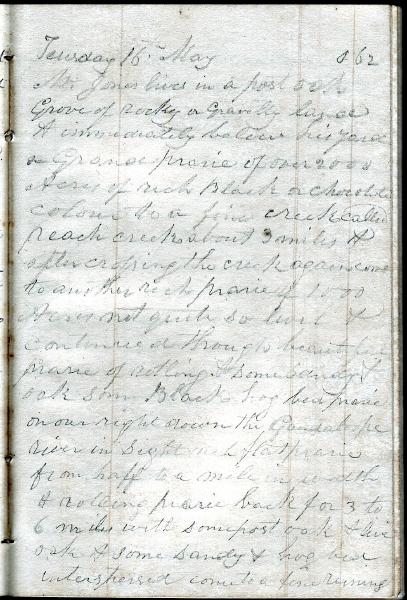 Teusday 16th May 862
Mr Jones lives in a post oak
Grove of rocky or Gravilly land
& immediately below his yard
a Grand praire of over 2000
Acres of rich Black or chocolate
colour to a fine creek called
peach creek about 3 miles &
after crossing the creek again come
to another rich praire of 1000
Acres not quite so level &
continued through beautiful
praire of rolling & some sandy &
oak some Black hog bed praire
on our right down the Gaudalope
river in sight rich flat praire
from half to a mile in width
& rolling praire back for 3 to
6 miles with some post oak & live
oak & some sandy & hog bed
interspersed come to a fine runing